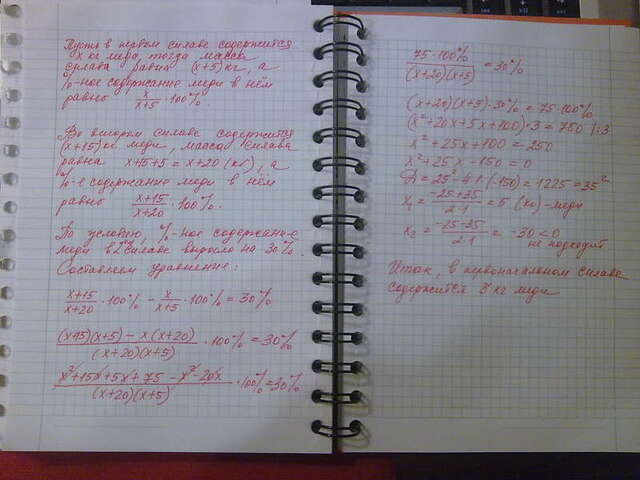 Пусть в первом сплаве содержится
х кг меди, тогда масса
сплава равна (x+5) кг, а
%-ное содержание меди в нём
равно x/(x+5) · 100%.
Во втором сплаве содержится
(x+15) кг меди, масса сплава
равна x+15+5 = x+20 (кг), а
%-е содержание меди в нём
равно (x+15)/(x+20) · 100%.
По условию, %-ное содержание
меди в 2 сплаве выросло на 30%.
Составляем уравнение:
(x+15)/(x+20) · 100% - x/(x+5) · 100% = 30%
((x+15)(x+5) - x(x+20))/((x+20)(x+5)) · 100% = 30%
(x²+15x+5x+75 - x² - 20x)/((x+20)(x+5)) · 100% = 30%
75 · 100%/((x+20)(x+5)) = 30%
(x+20)(x+5) · 30% = 75 · 100%
(x²+20x+5x+100) · 3 = 750 | :3
x²+25x+100 = 250
x²+25x-150 = 0
Д = 25² - 4·1·(-150) = 1225 = 35²
x₁ = (-25+35)/(2·1) = 5 (кг) - меди
x₂ = (-25-35)/(2·1) = -30 < 0
не подходит
Итак, в первоначальном сплаве
содержится 5 кг меди